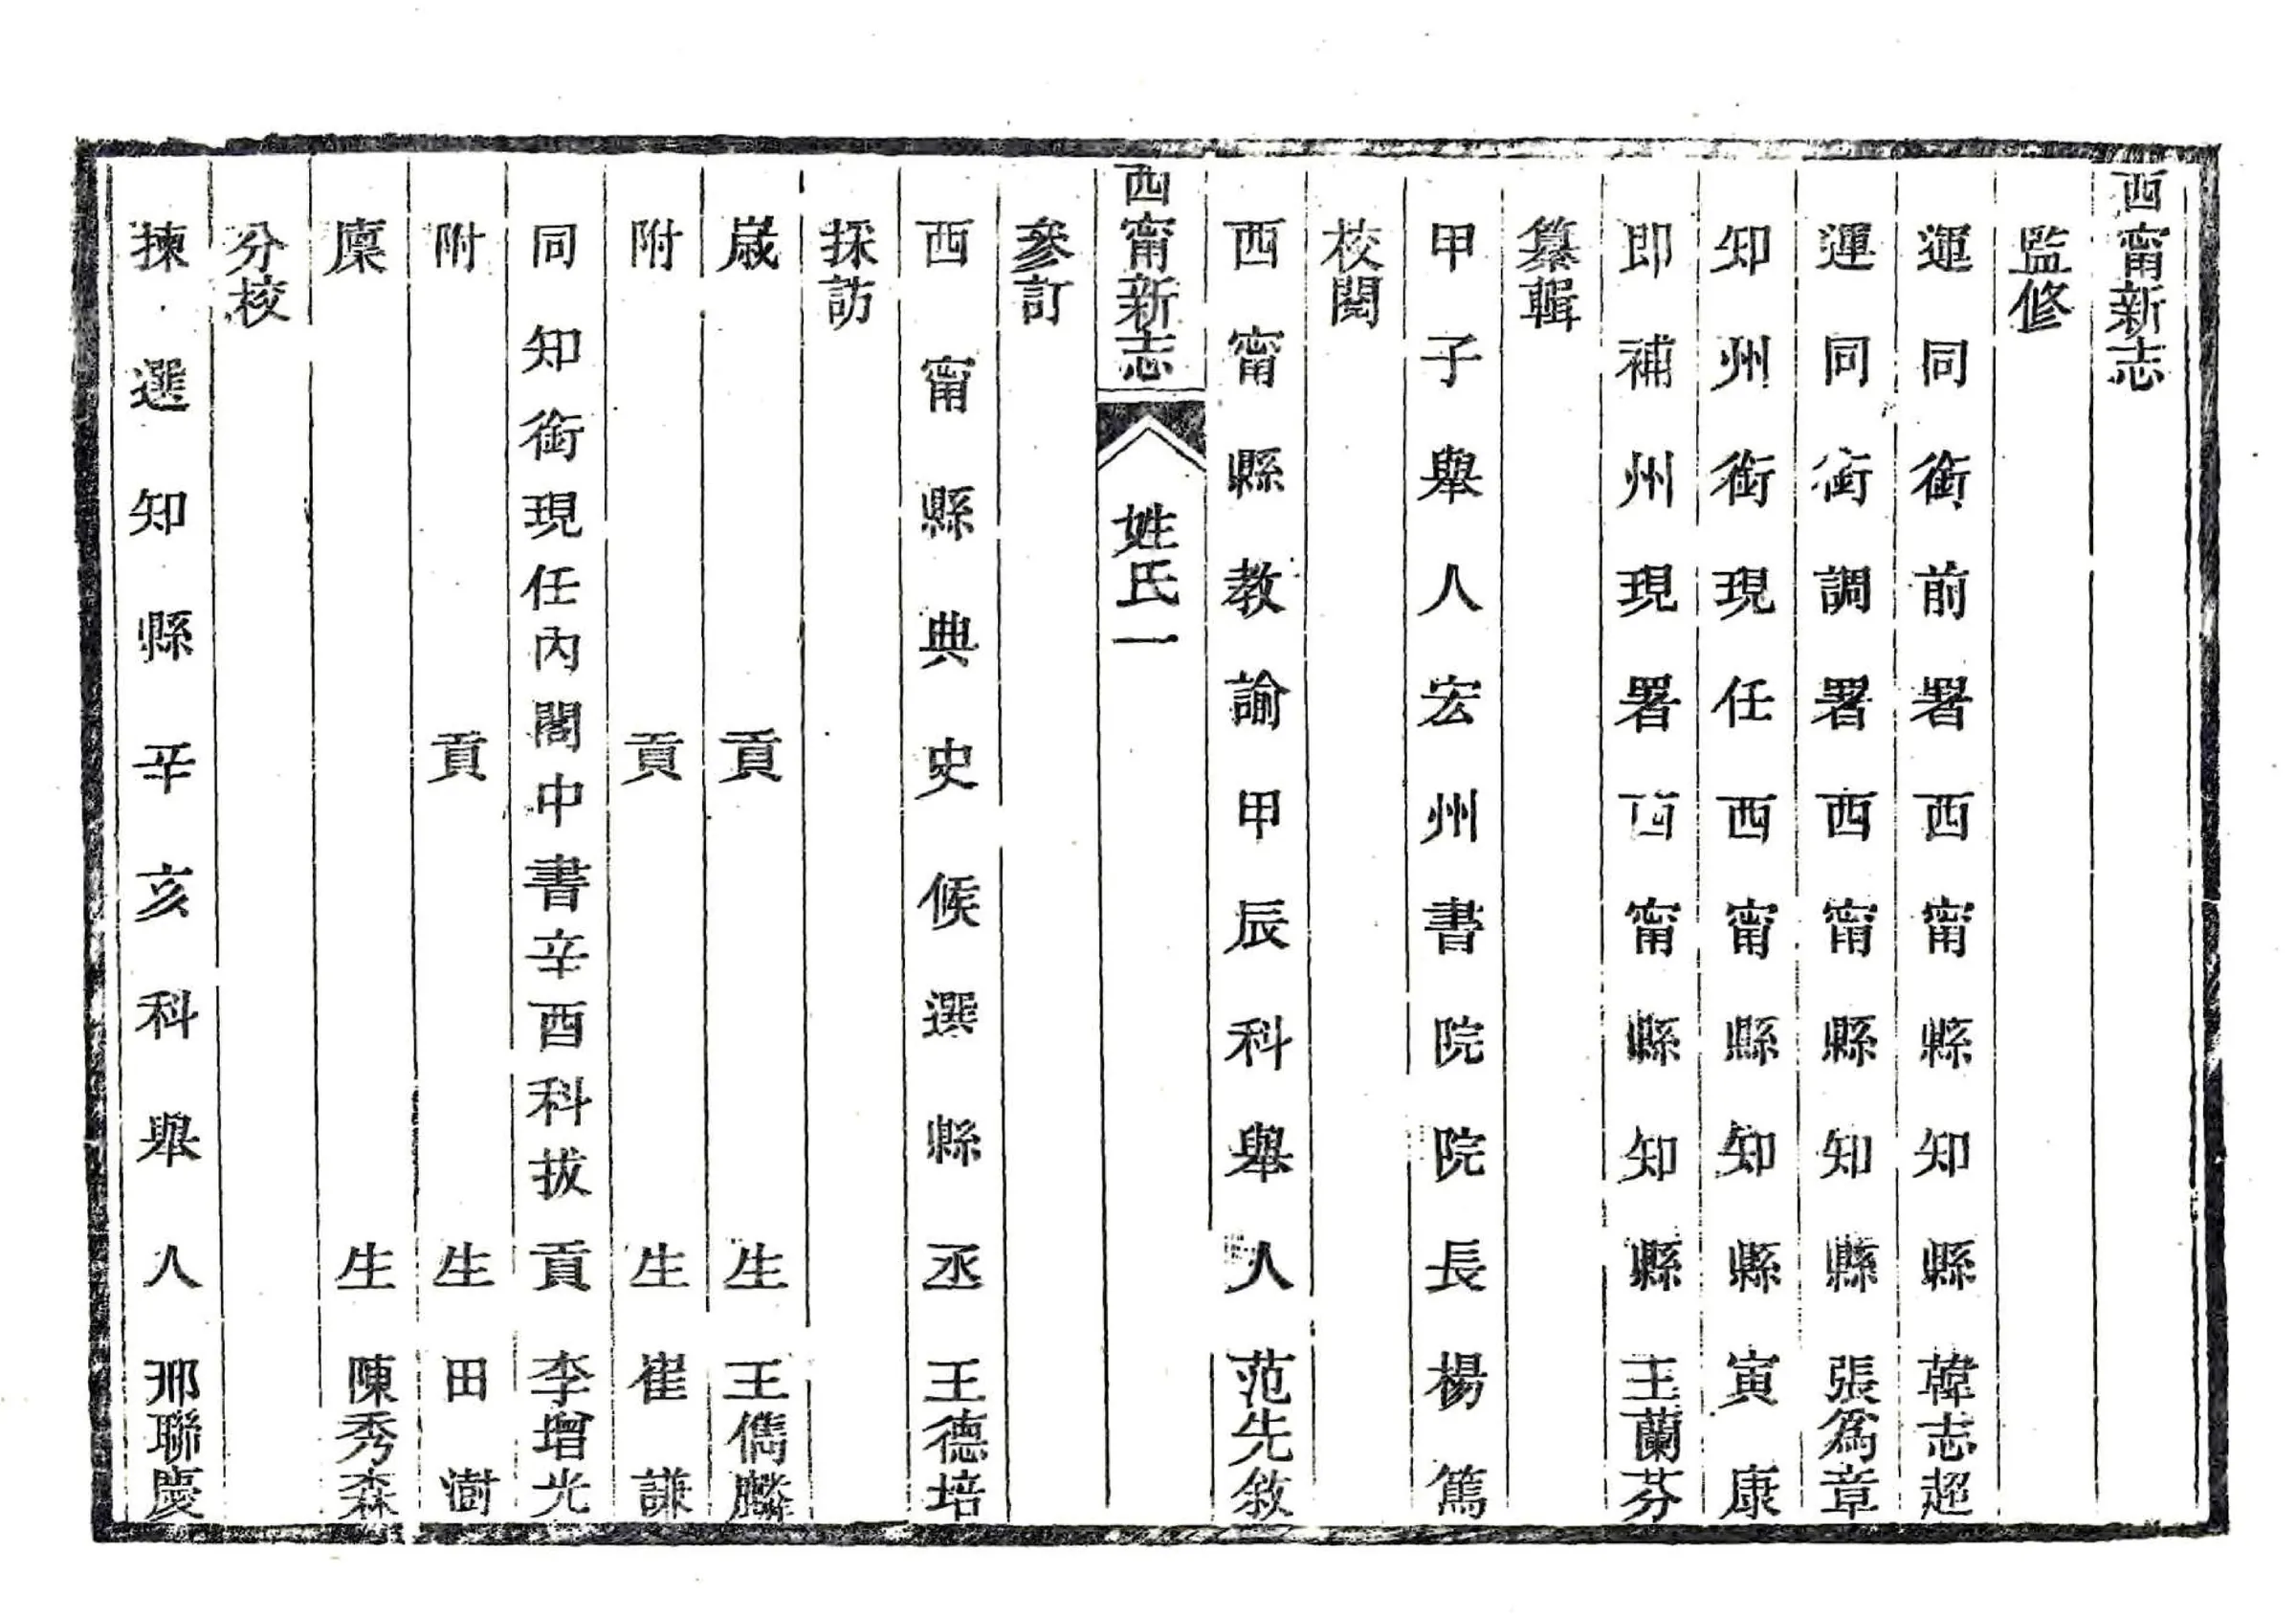 西甯新志
監修
運同銜前署西甯縣知縣韓志超
運同銜調署西甯縣知縣張爲章
知州銜現任西甯縣知縣寅康
即補州現署西甯縣知縣王蘭芬
纂輯
甲子舉人宏州書院院長楊篤
校閱
西甯縣教諭甲辰科舉人范先敘
西甯新志
姓氏一
參訂
西甯縣典史候選縣丞王德培
採訪
歲貢生王儁麟
附貢生崔謙
同知銜現任內閣中書辛酉科拔貢李增光
附貢生田澍
廩生陳秀森
分校
揀選知縣辛亥科舉人邢聯慶